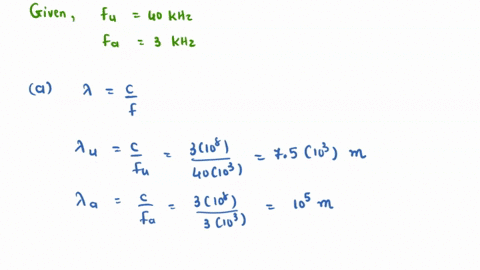 Given, fu = 40 kHz
fa = 3 kHz
(a) λ = c/f
λu = c/fu = 3(10⁸)/40(10³) = 7.5(10³) m
λa = c/fa = 3(10⁸)/3(10³) = 10⁵ m